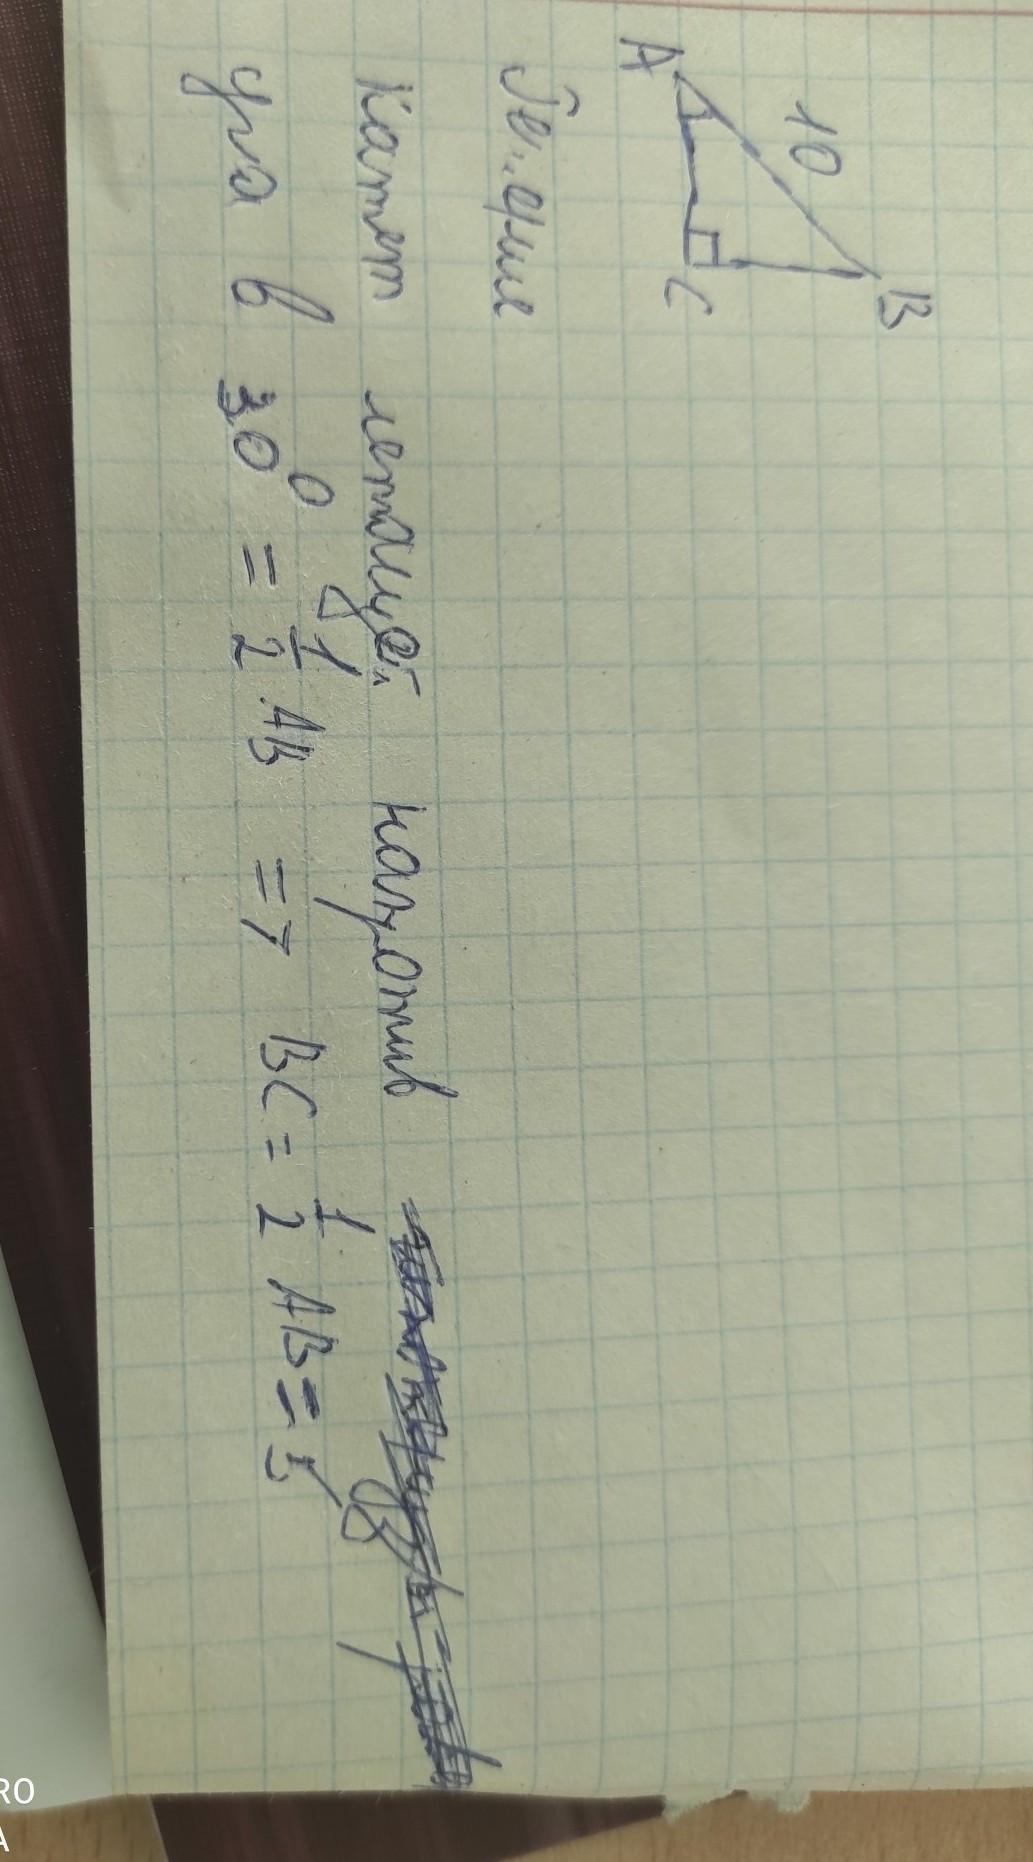 B
10
A
C
Решение
Катет лежащей напротив
угла в 30° = 1/2 AB => BC = 1/2 AB = 5
RO
A